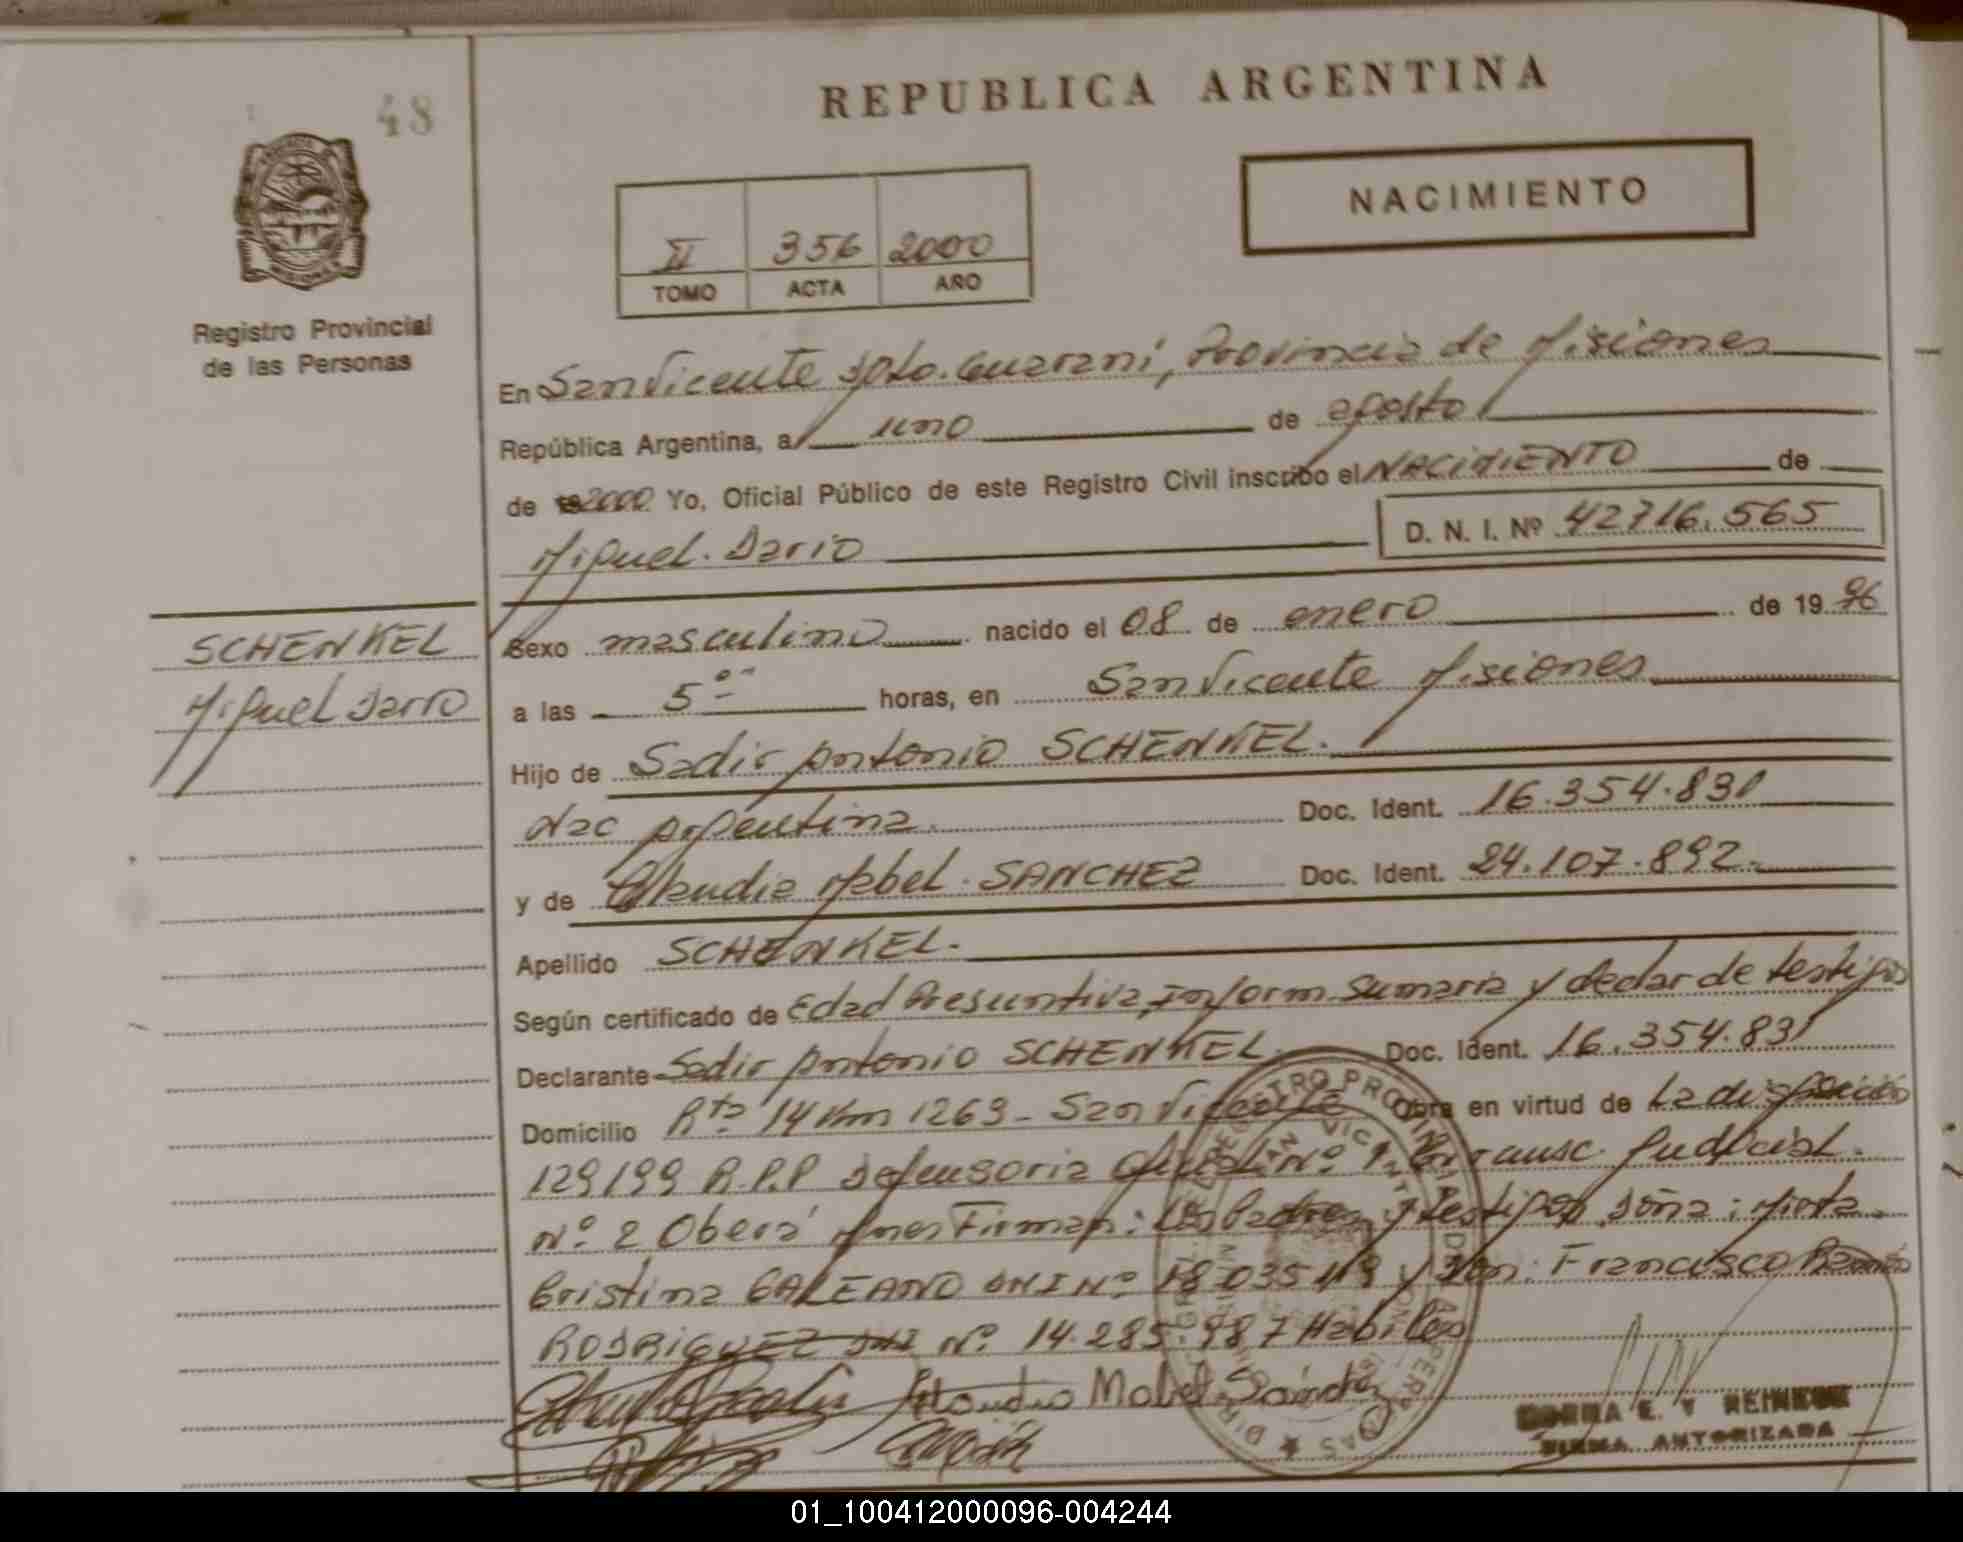 48
REPUBLICA ARGENTINA
NACIMIENTO
II 356 2000
TOMO ACTA AÑO
Registro Provincial
de las Personas
En San Vicente Dpto. Guaraní, Provincia de Misiones
República Argentina, a uno de agosto
de 2000 Yo, Oficial Público de este Registro Civil inscribo el NACIMIENTO de
Miguel Dario D. N. I. Nº 42716.565
SCHENKEL
Miguel Dario
Sexo masculino nacido el 08 de enero de 1996
a las 5 horas, en San Vicente Misiones
Hijo de Sadir Antonio SCHENKEL.
Nac Argentina. Doc. Ident. 16.354.831
y de Claudia Mabel SANCHEZ Doc. Ident. 24.107.892.
Apellido SCHENKEL.
Según certificado de Edad Presuntiva, Inform. Sumaria y declar de testigos
Declarante Sadir Antonio SCHENKEL Doc. Ident. 16.354.831
Domicilio Rta 14 Km 1263 - San Vicente Obra en virtud de La disposición
129/99 R.P.P Defensoria Oficial Nº 1 Circunsc. Judicial.
Nº 2 Oberá Mnes Firman: Los Padres y testigos Doña: Mirta
Cristina GALEANO DNI Nº 18.035.119 y Don: Francisco Ramón
RODRIGUEZ DNI Nº 14.285.987 Habiles
Mabel Sánchez
REGISTRO PROVINCIAL DE LAS PERSONAS
SAN VICENTE
MISIONES
NORMA E. Y REINEKE
FIRMA AUTORIZADA
01_100412000096-004244